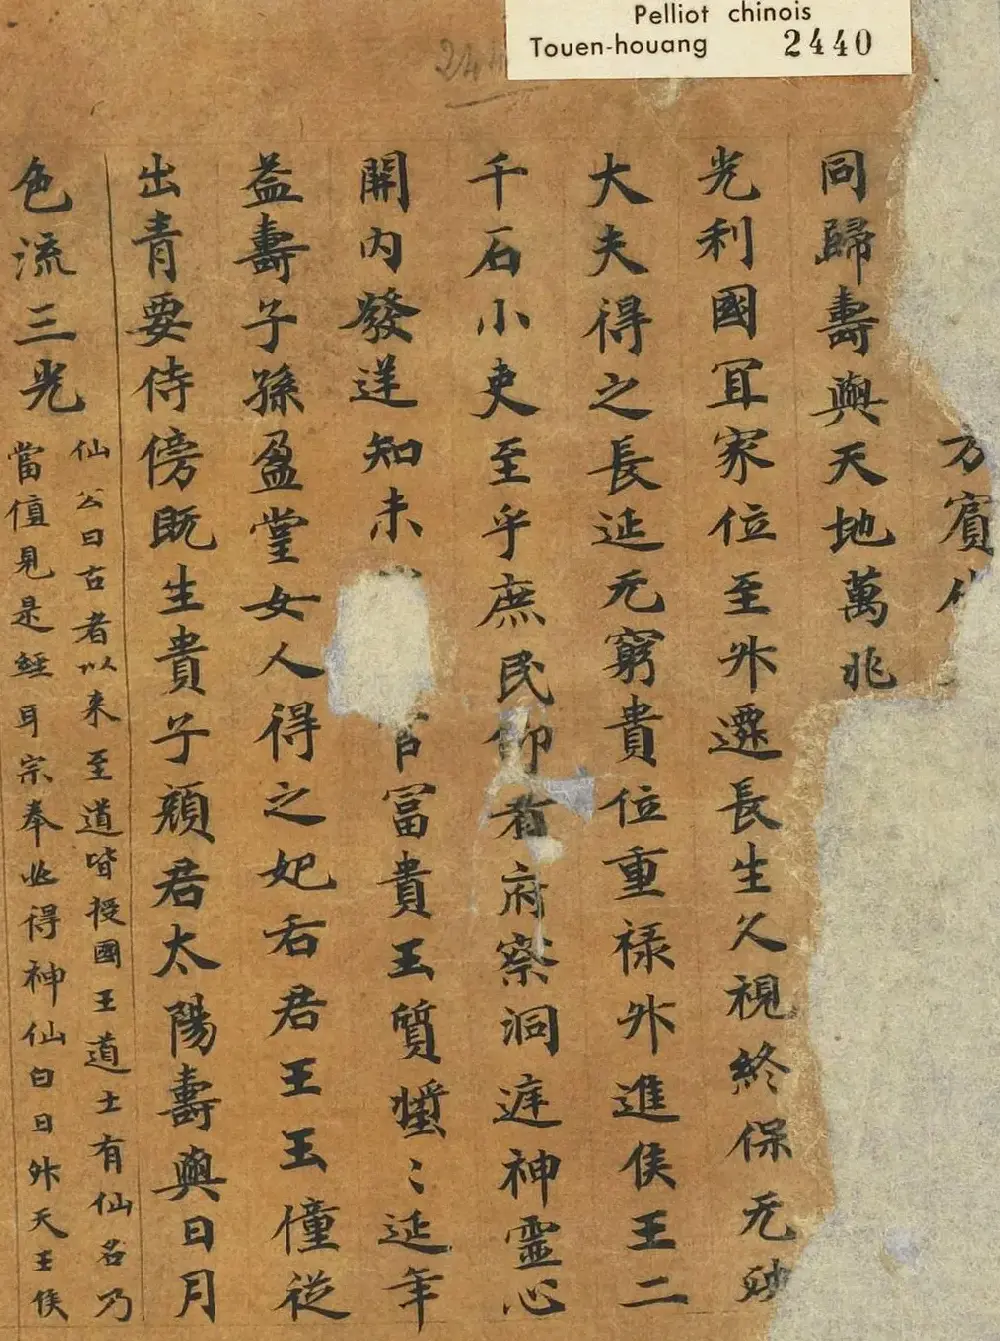 Pelliot chinois
Touen-houang 2440
244
万賓
同歸壽與天地萬兆
光利國冝家位至升遷長生久視終保无
大夫得之長延无窮貴位重禄升進侯王二
千石小吏至乎庶民仰看府察洞遅神靈心
開内發逆知未官冨貴玉質㜲〻延年
益壽子孫盈堂女人得之妃后君王玉憧従
出青要侍傍既生貴子顔君太陽壽與日月
色流三光
仙公曰古者以来至道皆授國王道士有仙名乃
當值見是經耳宗奉必得神仙白日升天王侯